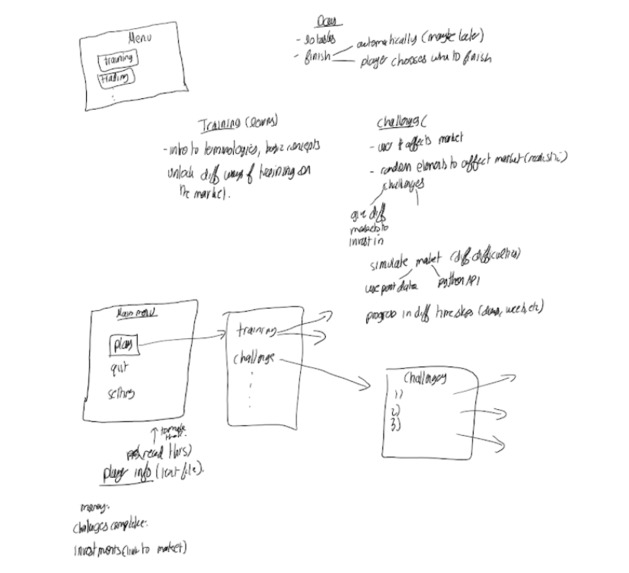 Menu
training
trading
Days
- finish
automatically (maybe later)
player chooses when to finish
Training (learns)
- intro to terminologies, basic concepts
unlock diff ways of training on
the market.
Challenges (
- user affects market
- random elements to affect market (realistic)
challenges
give diff
markets to
invest in
simulate market (diff difficulties)
use past data
python API
progress in diff time steps (days, weeks, etc)
Main menu
play
quit
setting
training
challenge
Challenges
1)
2)
3)
read this)
player info (text file).
money.
challenges complete.
investments (link to market)